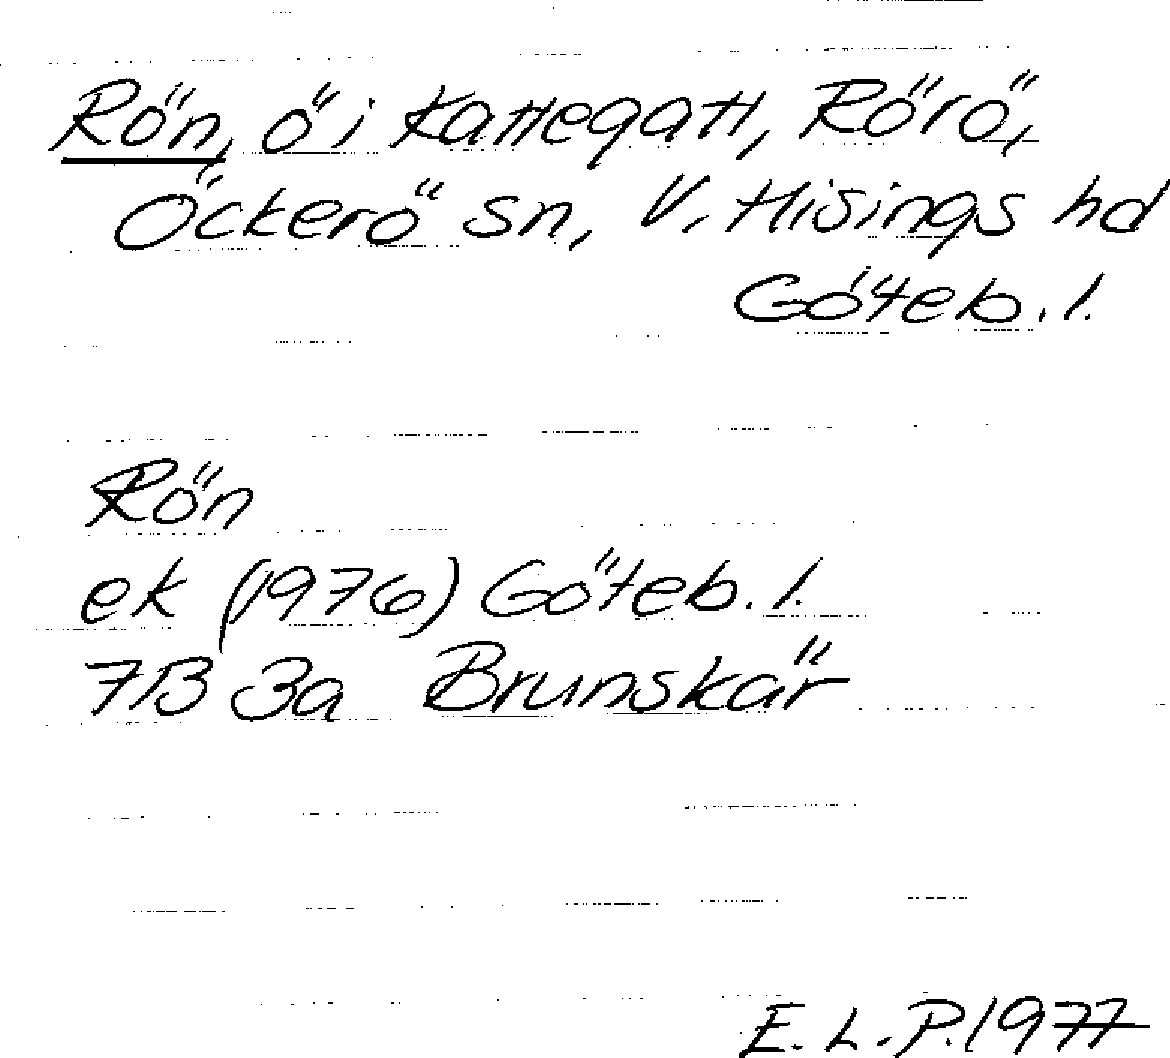 Rön, ö i Kattegatt, Rörö,
Öckerö sn, V. Hisings hd
Göteb. l.
Rön
ek (1976) Göteb. l.
7B 3a Brunskär
E. L. P. 1977